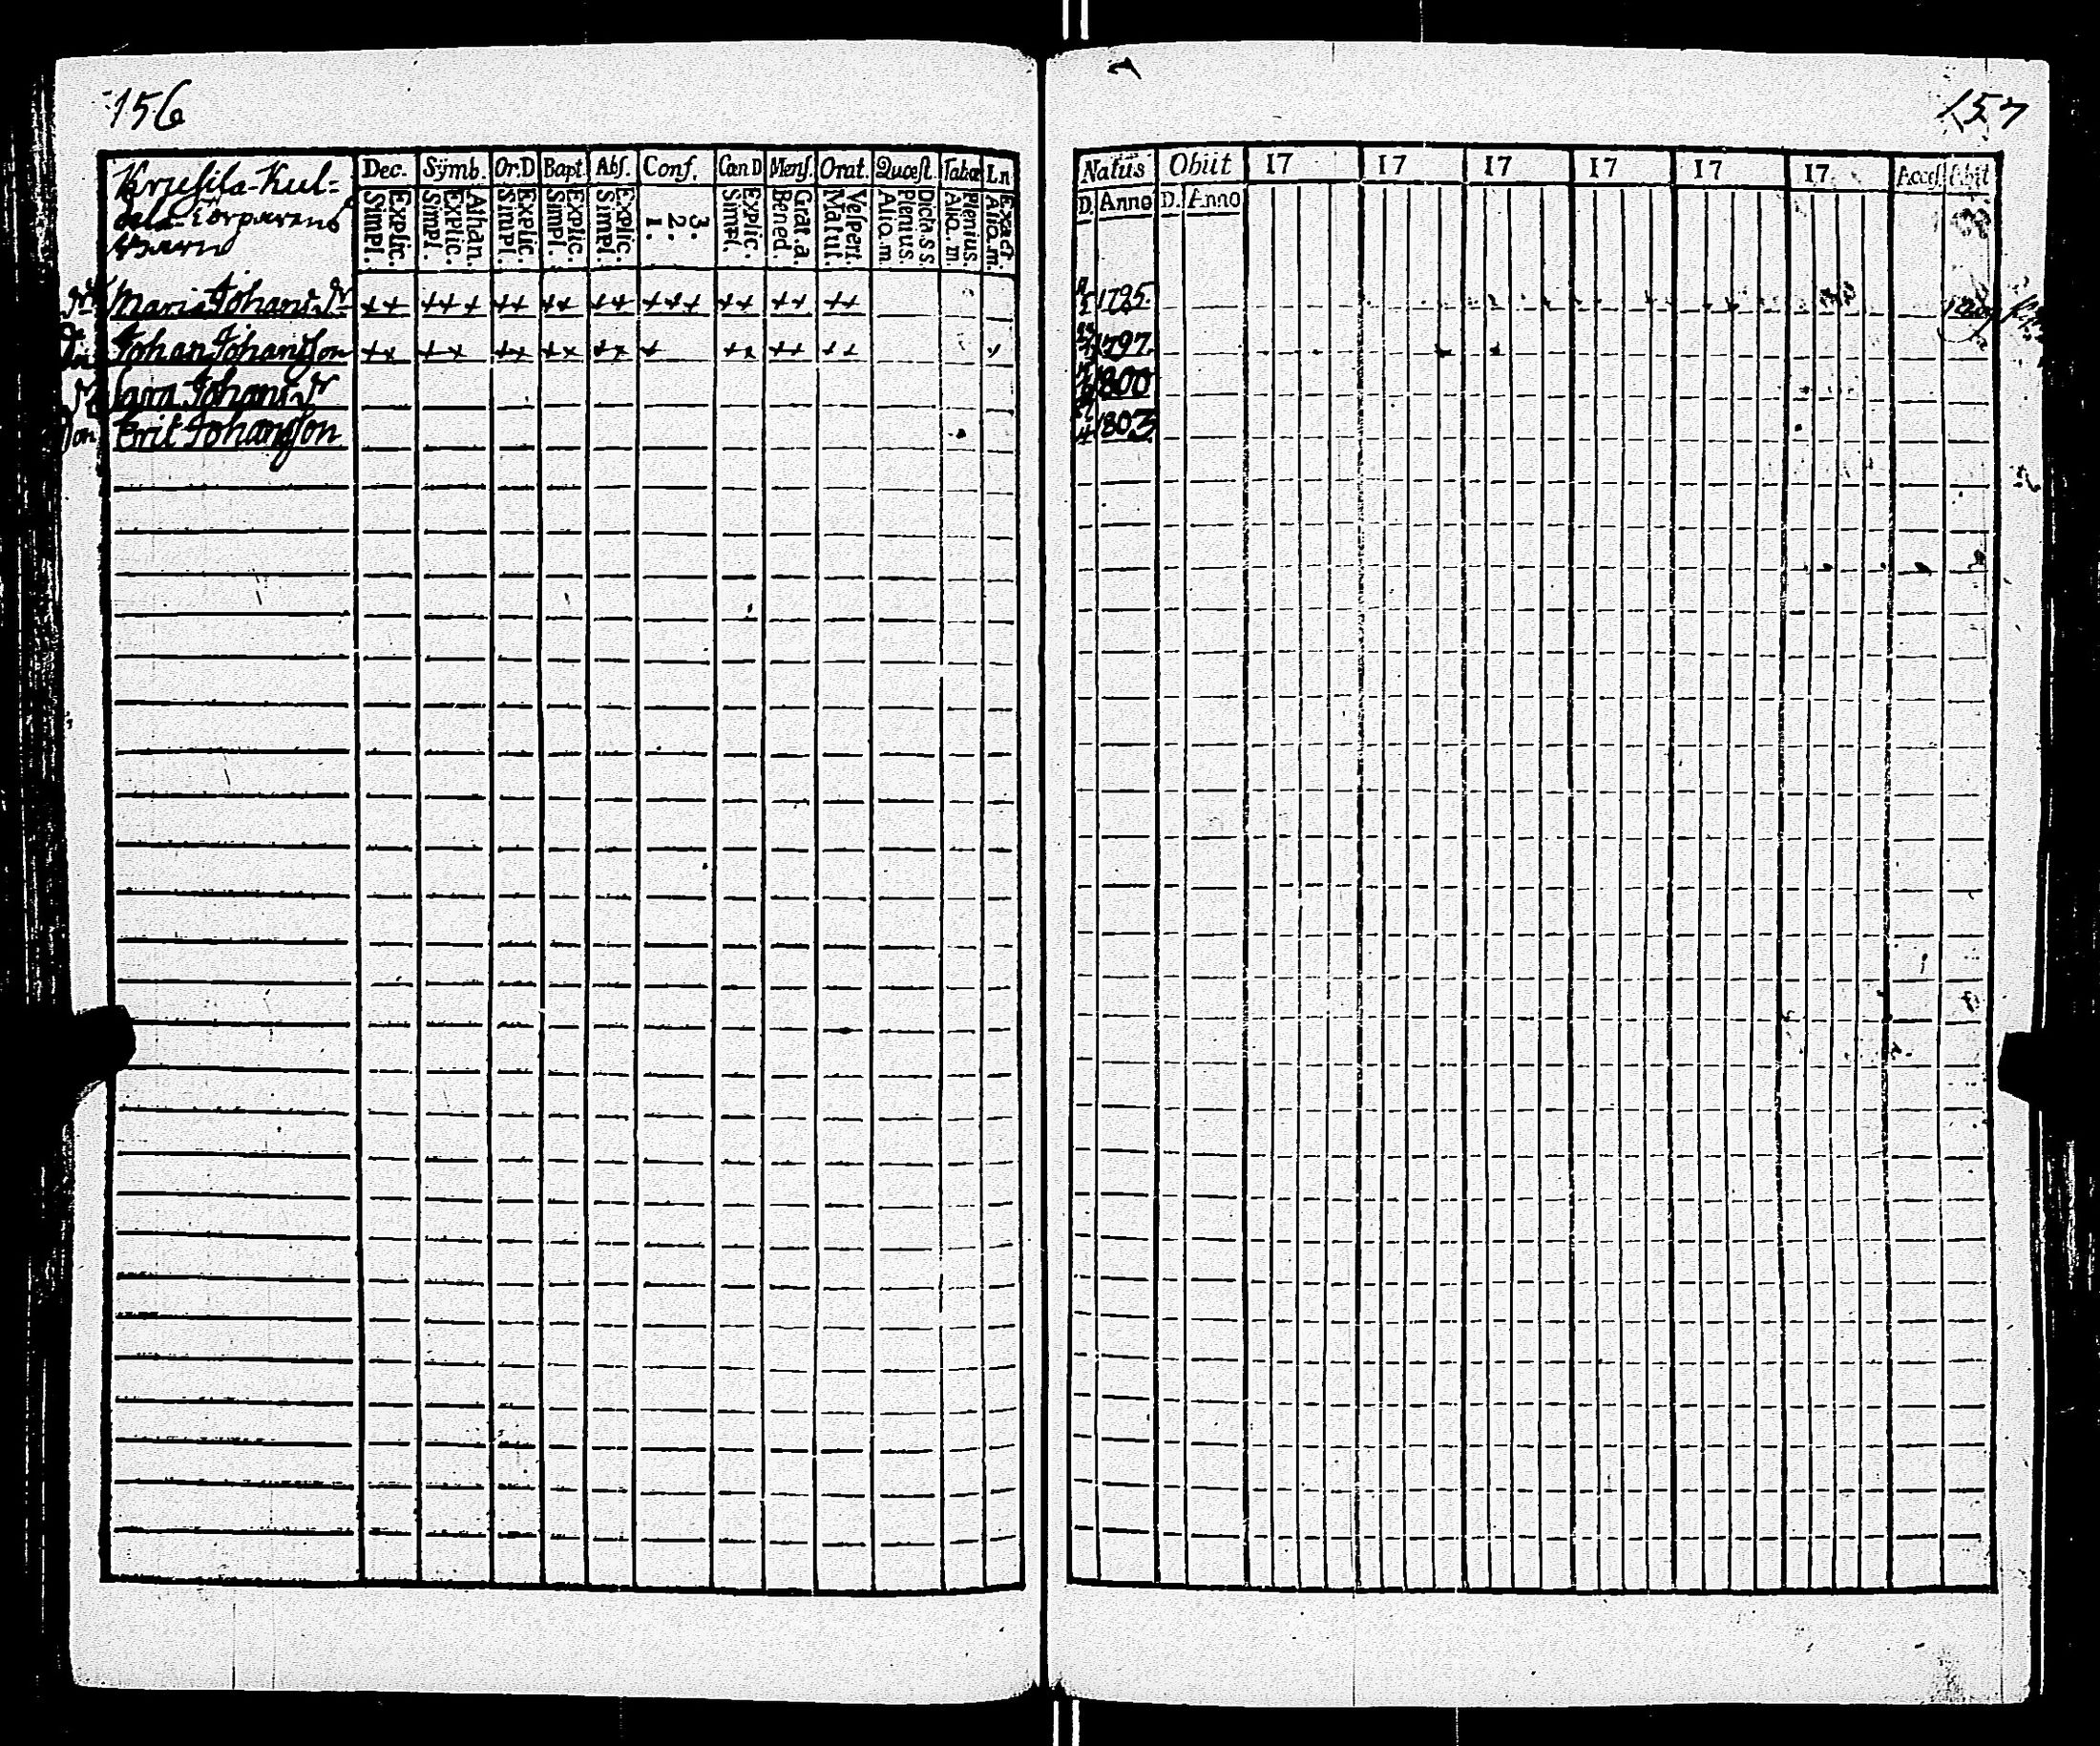 156
157
Krusila-Kul-
dela Torparens
Barn
Dec. Symb. Or.D Bapt. Abs. Conf. Cœn D Mens. Orat. Quæst. Tabœ Ln
Simpl. Explic. Simpl. Explic. Athan. Simpl. Explic. Simpl. Explic. Simpl. Explic. 1. 2. 3. Simpl. Explic. Bened. Grat. a. Matut. Vespert. Alio. m. Plenius. Dicta S S. Alio. m Plenius. Alio. m. Exact.
Natus Obiit 17 17 17 17 17 17 Access Abit
D. Anno D. Anno
Maria Johans dr ++ +++ ++ ++ ++ +++ ++ ++ ++ 1795.
Johan Johansson ++ ++ ++ ++ ++ + ++ ++ ++ + 1797.
Sara Johans dr 1800
Son Erik Johansson 1803